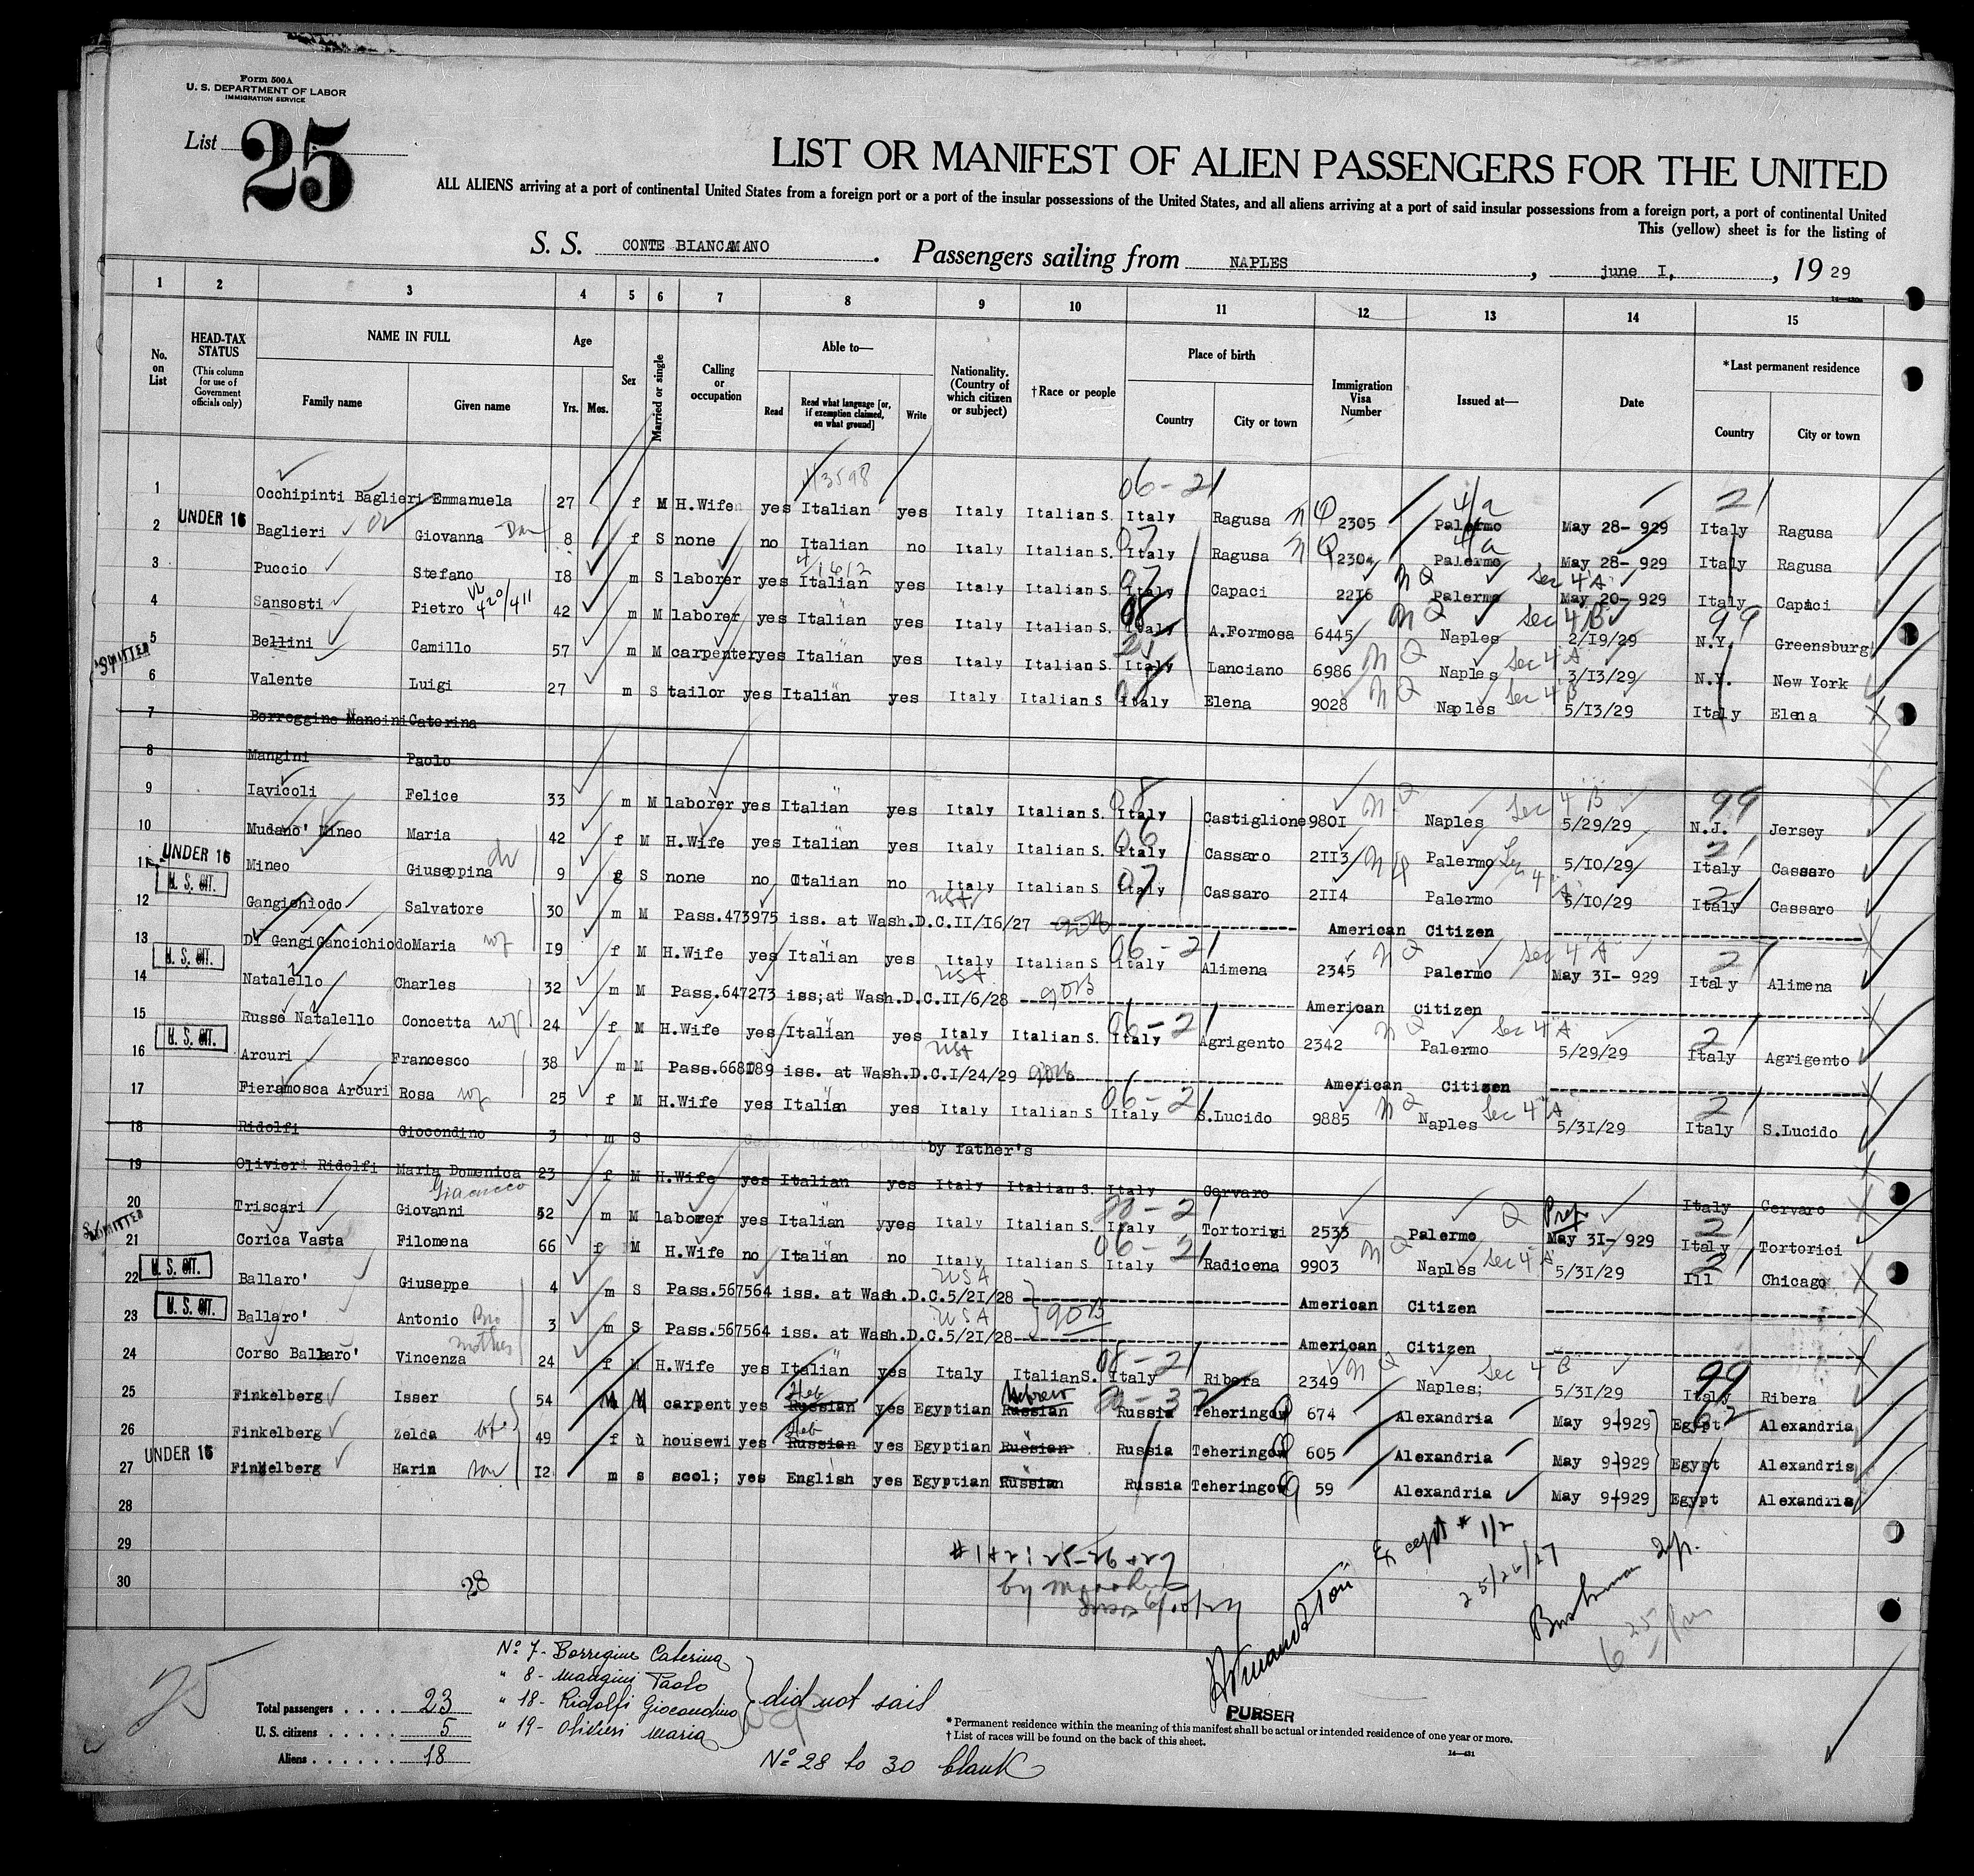 Form 500A
U. S. DEPARTMENT OF LABOR
IMMIGRATION SERVICE
List 25
LIST OR MANIFEST OF ALIEN PASSENGERS FOR THE UNITED
ALL ALIENS arriving at a port of continental United States from a foreign port or a port of the insular possessions of the United States, and all aliens arriving at a port of said insular possessions from a foreign port, a port of continental United
This (yellow) sheet is for the listing of
S. S. CONTE BIANCAMANO . Passengers sailing from NAPLES , june I, , 19 29
14-430a
1 2 3 4 5 6 7 8 9 10 11 12 13 14 15
No. on List
HEAD-TAX STATUS (This column for use of Government officials only)
NAME IN FULL
Family name Given name
Age
Yrs. Mos.
Sex
Married or single
Calling or occupation
Able to—
Read Read what language [or, if exemption claimed, on what ground] Write
Nationality. (Country of which citizen or subject)
†Race or people
Place of birth
Country City or town
Immigration Visa Number
Issued at—
Date
*Last permanent residence
Country City or town
43598 06-21 4/a 21
1 Occhipinti Baglieri Emmanuela 27 f M H.Wife yes Italian yes Italy Italian S. Italy Ragusa nQ 2305 Palermo May 28- 929 Italy Ragusa
UNDER 16
2 Baglieri Giovanna 8 f S none no Italian no Italy Italian S. Italy Ragusa nQ 2304 4/a Palermo May 28- 929 Italy Ragusa
3 Puccio Stefano 18 m S laborer yes Italian yes Italy Italian S. Italy Capaci 2216 nQ Palermo Sec 4 A May 20- 929 Italy Capaci
4 Sansosti Pietro 420/411 42 m M laborer yes Italian yes Italy Italian S. Italy A.Formosa 6445 nQ Naples Sec 4 B 2/19/29 99 N.Y. Greensburg
5 Bellini Camillo 57 m M carpenter yes Italian yes Italy Italian S. Italy Lanciano 6986 nQ Naples Sec 4 A 3/13/29 N.Y. New York
ADMITTED
6 Valente Luigi 27 m S tailor yes Italian yes Italy Italian S Italy Elena 9028 nQ Naples Sec 4 B 5/13/29 Italy Elena
7 Borreggine Mancini Caterina
8 Mangini Paolo
9 Iavicoli Felice 33 m M laborer yes Italian yes Italy Italian S. Italy Castiglione 9801 nQ Naples Sec 4 B 5/29/29 99 N.J. Jersey
10 Mudano' Mineo Maria 42 f M H.Wife yes Italian yes Italy Italian S. 06 Italy Cassaro 2113 nQ Palermo 5/10/29 21 Italy Cassaro
UNDER 16
11 Mineo Giuseppina 9 f S none no Italian no Italy Italian S 07 Italy Cassaro 2114 Palermo 5/10/29 Italy Cassaro
U. S. CIT.
12 Gangichiodo Salvatore 30 m M Pass.473975 iss. at Wash.D.C.II/16/27 USA American Citizen
13 Di Gangi Gancichiodo Maria wf 19 f M H.Wife yes Italian yes Italy Italian S 06-21 Italy Alimena 2345 nQ Palermo Sec 4 A May 31- 929 21 Italy Alimena
U. S. CIT.
14 Natalello Charles 32 m M Pass.647273 iss;at Wash.D.C.II/6/28 USA 90B American Citizen
15 Russe Natalello Concetta wf 24 f M H.Wife yes Italian yes Italy Italian S. 06-21 Italy Agrigento 2342 nQ Palermo Sec 4 A 5/29/29 21 Italy Agrigento
U. S. CIT.
16 Arcuri Francesco 38 m M Pass.668189 iss. at Wash.D.C.I/24/29 USA American Citizen
17 Fieramosca Arcuri Rosa wf 25 f M H.Wife yes Italian yes Italy Italian S 06-21 Italy S.Lucido 9885 nQ Naples Sec 4 A 5/31/29 21 Italy S.Lucido
18 Ridolfi Giocondino 3 m S by father's
19 Olivieri Ridolfi Maria Domenica 23 f M H.Wife yes Italian yes Italy Italian S. Italy Cervaro Italy Cervaro
20 Triscari Giovanni 52 m M laborer yes Italian yyes Italy Italian S. Italy Tortorici 2533 Q Palermo Pref. May 31- 929 Italy Tortorici
ADMITTED
21 Corica Vasta Filomena 66 f M H.Wife no Italian no Italy Italian S 06-21 Italy Radicena 9903 nQ Naples Sec 4 A 5/31/29 Ill Chicago
U. S. CIT.
22 Ballaro' Giuseppe 4 m S Pass.567564 iss. at Wash.D.C.5/21/28 USA American Citizen
U. S. CIT.
23 Ballaro' Antonio Bro 3 m S Pass.567564 iss. at Wash.D.C.5/21/28 USA 90B American Citizen
mother
24 Corso Ballaro' Vincenza 24 f M H.Wife yes Italian yes Italy Italian S. 08-21 Italy Ribera 2349 nQ Naples; Sec 4 B 5/31/29 99 Italy Ribera
25 Finkelberg Isser 54 M M carpent yes Heb Russian yes Egyptian Hebrew Russian Russia Teheringow 674 Alexandria May 9-929 Egypt Alexandria
26 Finkelberg Zelda wfe 49 f u housewi yes Heb Russian yes Egyptian Russian Russia Teheringow 605 Alexandria May 9-929 Egypt Alexandris
UNDER 16
27 Finkelberg Harin son 12 m s scol; yes English yes Egyptian Russian Russia Teheringow 59 Alexandria May 9-929 Egypt Alexandris
28
29
30
28
#1+2; 25-26+27
Except # 1/2
25/26/27
No 7- Borregine Caterina
" 8- Mangini Paolo
" 18- Ridolfi Giocondino
" 19- Olivieri Maria
did not sail
No 28 to 30 blank
25
Total passengers . . . . 23
U. S. citizens . . . . . 5
Aliens . . . . . . 18
PURSER
* Permanent residence within the meaning of this manifest shall be actual or intended residence of one year or more.
† List of races will be found on the back of this sheet.
14-431